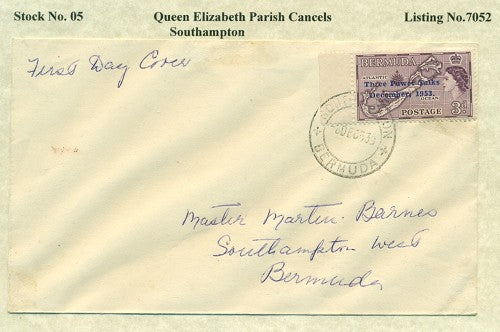 Stock No. 05
Queen Elizabeth Parish Cancels
Listing No.7052
Southampton
First Day Cover
BERMUDA
ATLANTIC
Three Power Talks
December, 1953.
OCEAN
POSTAGE 3d
BERMUDA
Master Martin Barnes
Southampton West
Bermuda